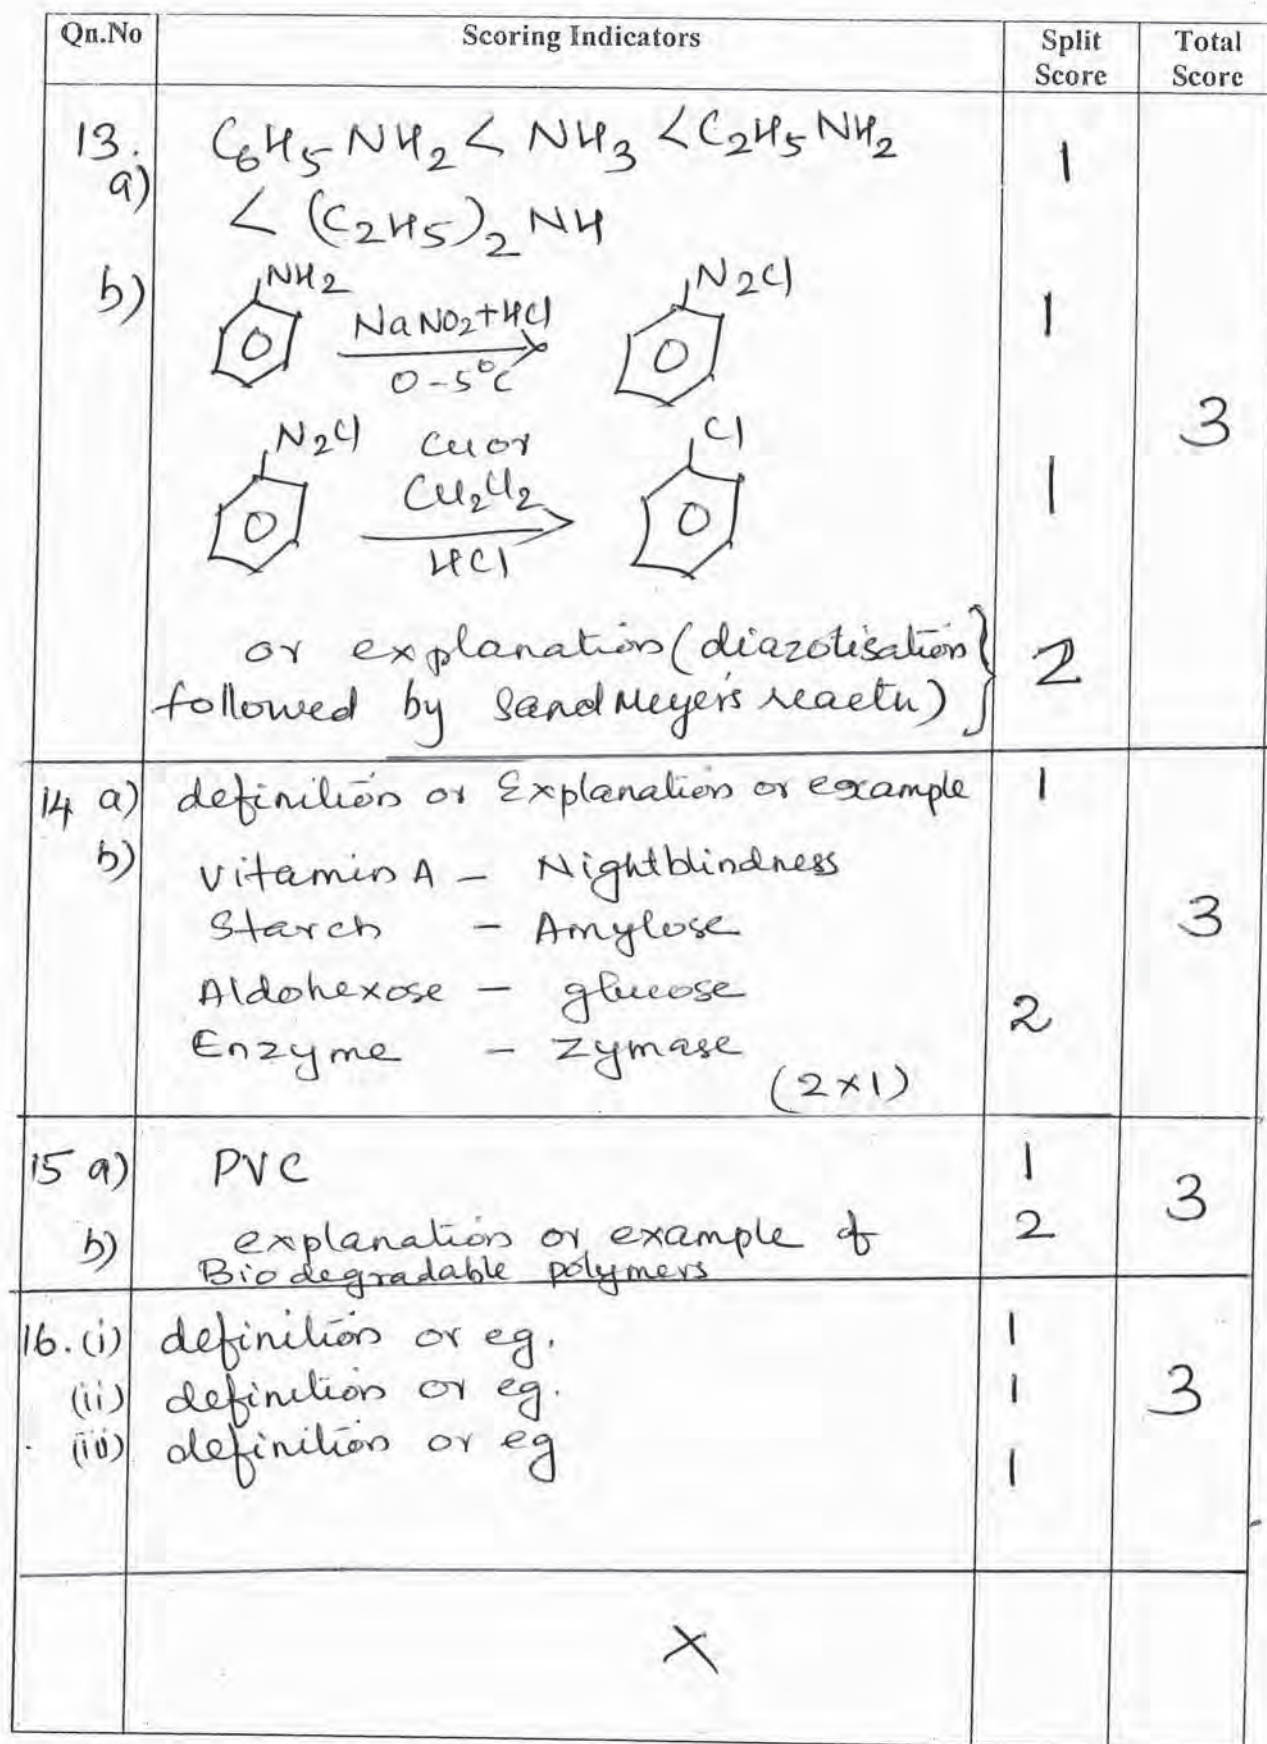 Qn.No Scoring Indicators Split Score Total Score
13. a) C₆H₅NH₂ < NH₃ < C₂H₅NH₂ 1
< (C₂H₅)₂NH
b) NH₂ NaNO₂+HCl 0-5°C N₂Cl 1
N₂Cl Cu or Cu₂Cl₂ HCl Cl 1
3
or explanation (diazotisation
followed by Sand Meyer's reactn) 2
14 a) definition or Explanation or example 1
b) Vitamin A – Nightblindness
Starch – Amylose 3
Aldohexose – glucose
Enzyme – Zymase 2
(2×1)
15 a) PVC 1 3
b) explanation or example of 2
Biodegradable polymers
16. (i) definition or eg. 1
(ii) definition or eg. 1 3
(iii) definition or eg 1
X